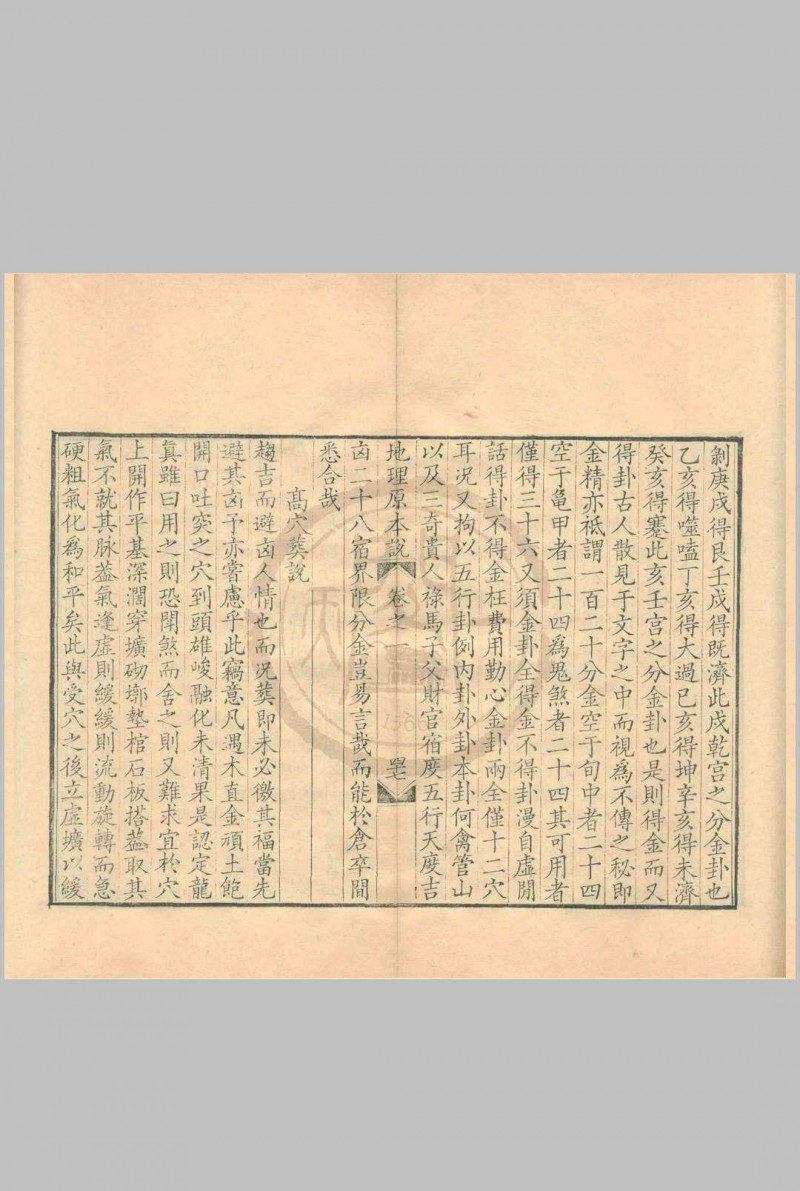 剝庚戌得艮壬戌得既濟此戌乾宮之分金卦也
乙亥得噬嗑丁亥得大過己亥得坤辛亥得未濟
癸亥得蹇此亥壬宮之分金卦也是則得金而又
得卦古人散見于文字之中而視爲不傳之秘即
金精亦祗謂一百二十分金空于旬中者二十四
空于龜甲者二十四爲鬼煞者二十四其可用者
僅得三十六又須金卦全得金不得卦漫自虛閒
話得卦不得金枉費用勤心金卦兩全僅十二穴
耳况又拘以五行卦例内卦外卦本卦何禽管山
以及三奇貴人祿馬子父財官宿度五行天度吉
地理原本說 卷之一
凶二十八宿界限分金豈易言哉而能於倉卒間
悉合哉
高穴葬說
趨吉而避凶人情也而况葬即未必徼其福當先
避其凶予亦嘗慮乎此竊意凡遇木直金頑土飽
開口吐突之穴到頭雄峻融化未清果是認定龍
眞雖曰用之則恐閗煞而舍之則又難求宜於穴
上開作平基深濶穿壙砌墎墊棺石板搭葢取其
氣不就其脉葢氣逢虛則緩緩則流動旋轉而急
硬粗氣化爲和平矣此與受穴之後立虛壙以緩